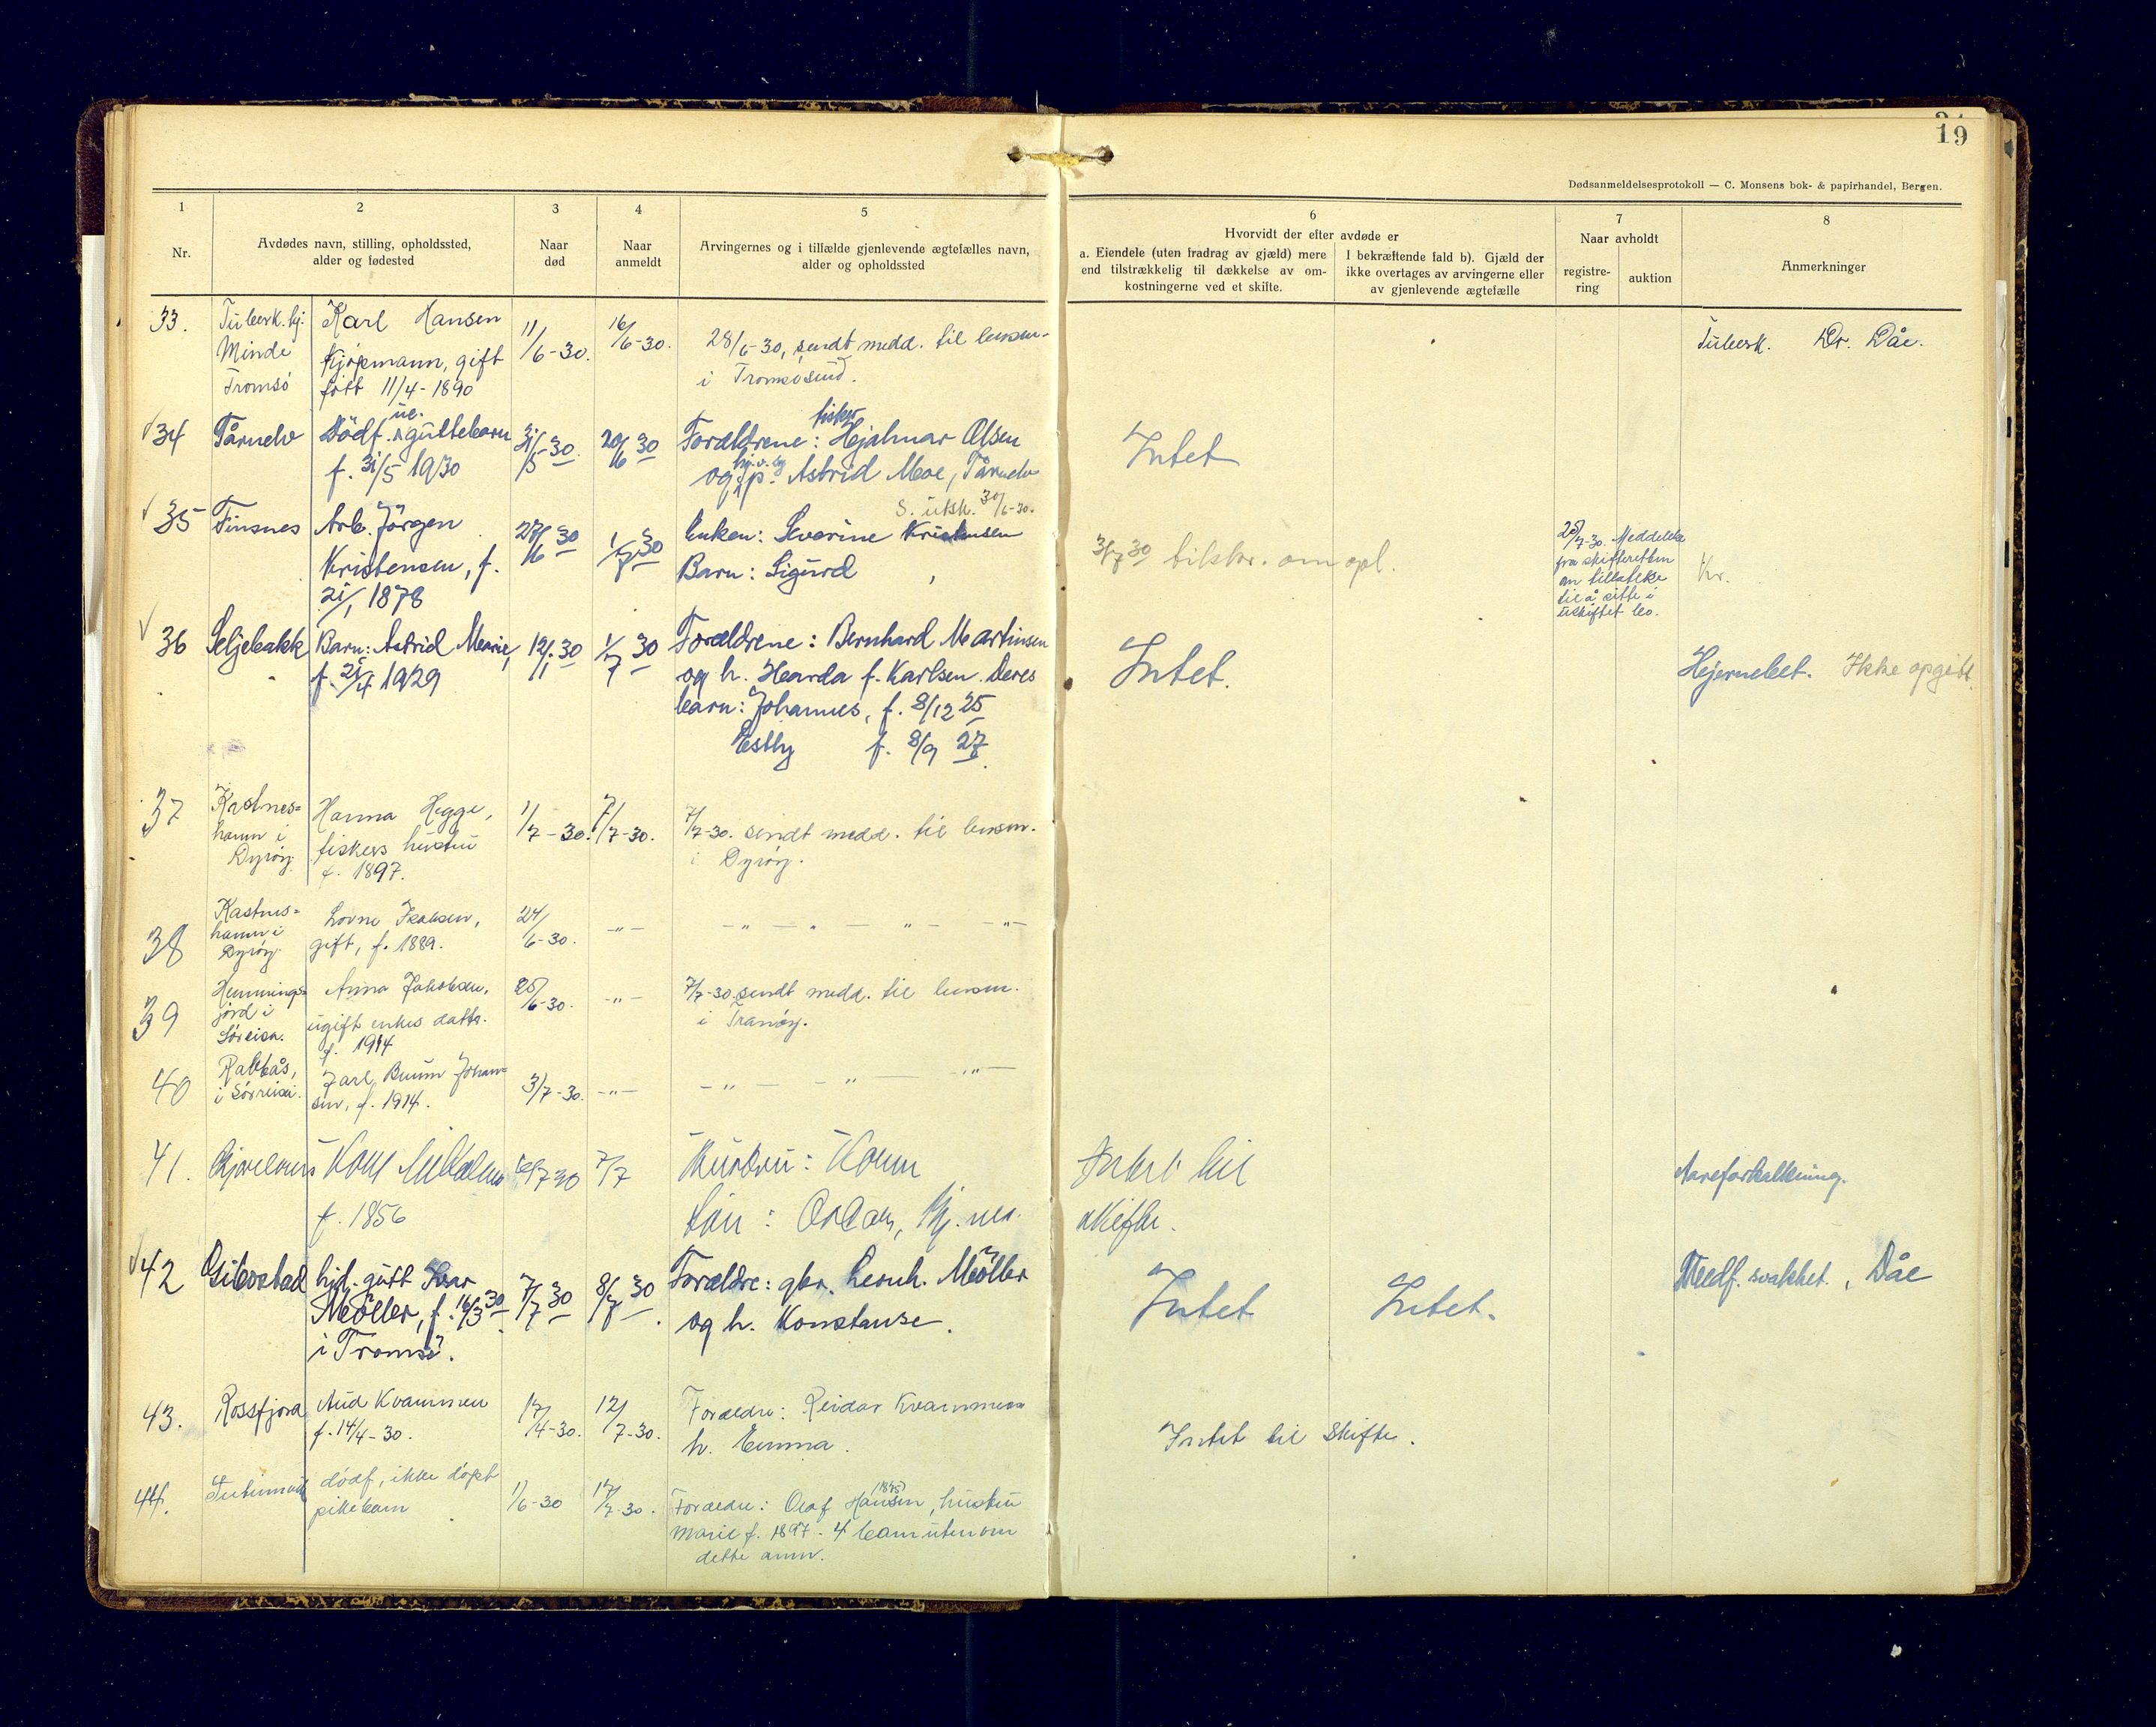 19
Dødsanmeldelsesprotokoll — C. Monsens bok- & papirhandel, Bergen.
1
Nr.
2
Avdødes navn, stilling, opholdssted,
alder og fødested
3
Naar
død
4
Naar
anmeldt
5
Arvingernes og i tilfælde gjenlevende ægtefælles navn,
alder og opholdssted
6
Hvorvidt der efter avdøde er
a. Eiendele (uten fradrag av gjæld) mere
end tilstrækkelig til dækkelse av om-
kostningerne ved et skifte.
I bekræftende fald b). Gjæld der
ikke overtages av arvingerne eller
av gjenlevende ægtefælle
7
Naar avholdt
registre-
ring
auktion
8
Anmerkninger
33.
Tuberk. hj.
Minde
Tromsö
Karl Hansen
Kjöpmann, gift
født 11/4-1890
11/6-30.
16/6-30.
28/6-30, sendt medd. til lensm.
i Tromsösund.
Tuberk. Dr. Dåe.
34
Tårnelv
ue.
Dödf. guttebarn
f. 31/5 1930
31/5 30.
20/6 30
fisker
Forældrene: Hjalmar Olsen
og p. Astrid Moe, Tårnelv
Intet
35
Finsnes
Arb. Jörgen
Kristensen, f.
21/1 1878
27/6 30
1/7 30
S. utsk. 30/6-30.
Enken: Severine Kristensen
Barn: Sigurd "
3/7 30 tilskr. om opl.
28/7-30. Meddelelse
fra skifteretten
om tillatelse
til å sitte i
uskiftet bo.
Kr.
36
Seljebakk
Barn: Astrid Marie,
f. 21/4 1929
12/1 30
1/7 30
Forældrene: Bernhard Martinsen
og h. Harda f. Karlsen. Deres
barn: Johannes, f. 8/12 25
Estly f. 8/9 27.
Intet.
Hjernebet. Ikke opgitt.
37
Kastnes=
hamn i
Dyröy.
Hanna Hegge,
fiskers hustru
f. 1897.
1/7-30.
7/7-30.
7/7-30. sendt medd. til lensm.
i Dyröy.
38
Kastnes=
hamn i
Dyröy.
gift, f. 1889.
24/6-30.
—"—
—"— " — "— —"—
39
Hemmings=
jord i
Sörreisa.
Anna Jakobsen,
ugift enkes datter.
f. 1914
25/6-30.
—"—
7/7-30. sendt medd. til lensm.
i Tranöy.
40
Rabbås,
i Sörreisa.
Jarl Buum Johan=
sen, f. 1914.
3/7-30.
—"—
—"— —"— —"—
41.
f. 1856
7/7
Hustru:
Sön: Oskar,
Intet til
skifte.
Aareforkalkning.
42
Gibostad
hjd. gutt Ivar
Möller, f. 16/3 30
i Tromsö.
7/7 30
8/7 30.
Forældre: gbr. Leonh. Möller
og h. Konstanse.
Intet
Intet.
Medf. svakhet. Dåe
43.
Rossfjord
Aud Kvammen
f. 14/4-30.
17/4-30.
12/7-30.
Forældre: Reidar Kvammen
h. Emma.
Intet til skifte.
44.
dödf, ikke döpt
pikebarn
1/6-30
17/7-30.
Forældre: Olaf Hansen, hustru
Marie f. 1897. 4 barn utenom
dette